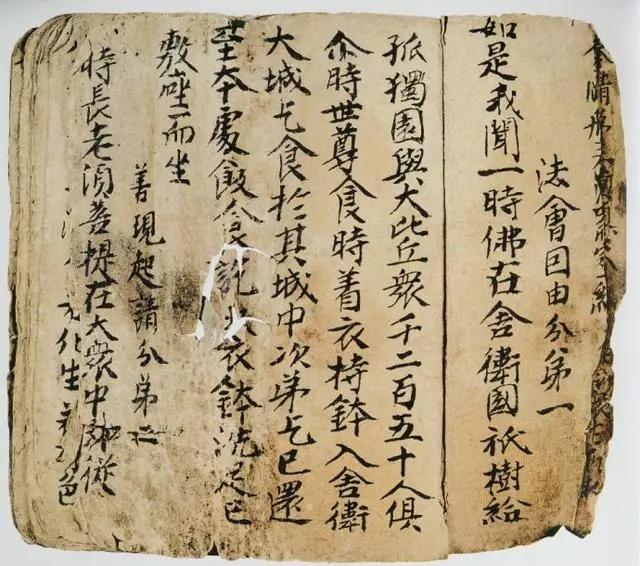 奉請
法會因由分第一
如是我聞一時佛在舍衛國祇樹給
孤獨園與大比丘衆千二百五十人俱
尒時世尊食時着衣持鉢入舍衛
大城乞食於其城中次苐乞已還
至本處飯食訖衣鉢洗足已
敷座而坐
善現起請分苐二
時長老湏菩提在大衆中即從
化生若色